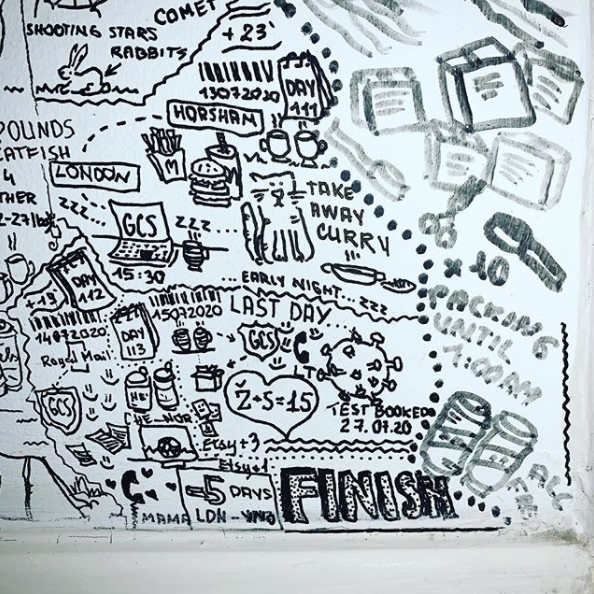 COMET
SHOOTING STARS
RABBITS
+23
13072020
DAY
111
HORSHAM
M
POUNDS
CATFISH
4
LONDON
TAKE
AWAY
CURRY
ZZZ
GCS
ZZZ
15:30
... EARLY NIGHT... ZZZ
x 10
PACKING
UNTIL
1:00 AM
+19
DAY
112
14072020
Royal Mail
GCS
15072020
DAY
113
LAST DAY
GCS
Ž+S=15
TEST BOOKED
27.07.20
Etsy+3
Etsy+1
-5 DAYS
MAMA
LDN -
FINISH